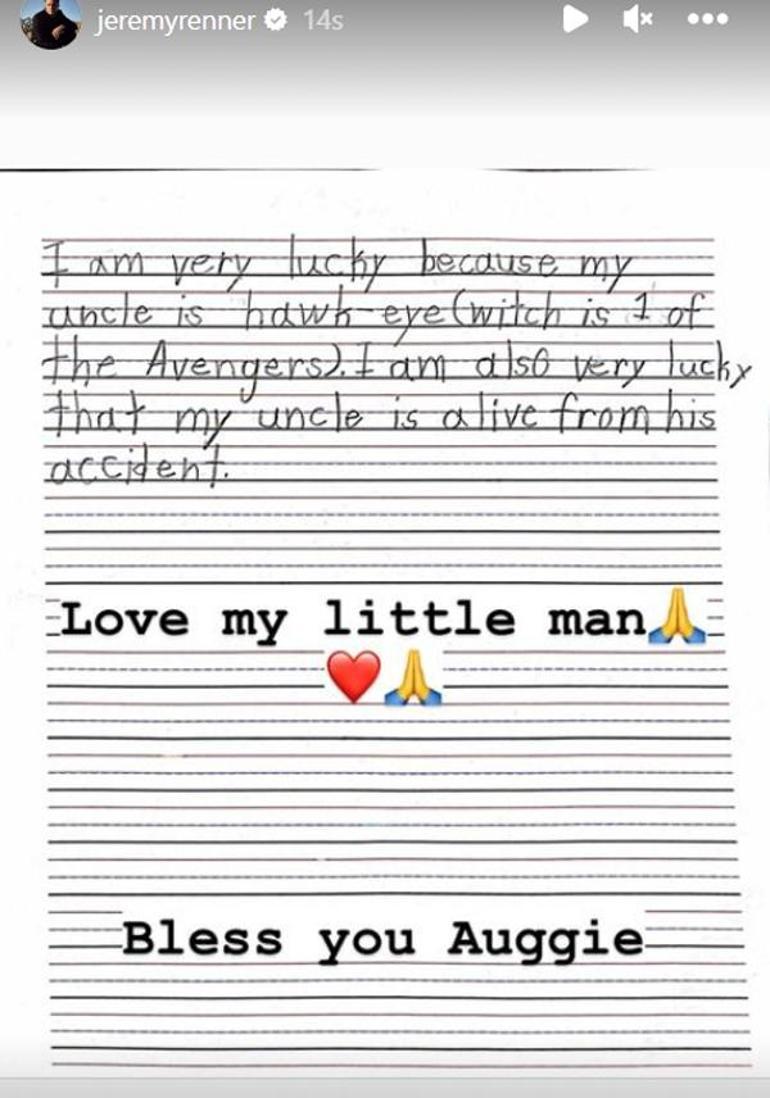 jeremyrenner 14s
I am very lucky because my
uncle is hawk-eye(witch is 1 of
the Avengers). I am also very lucky
that my uncle is alive from his
accident.
Love my little man🙏
❤️🙏
Bless you Auggie